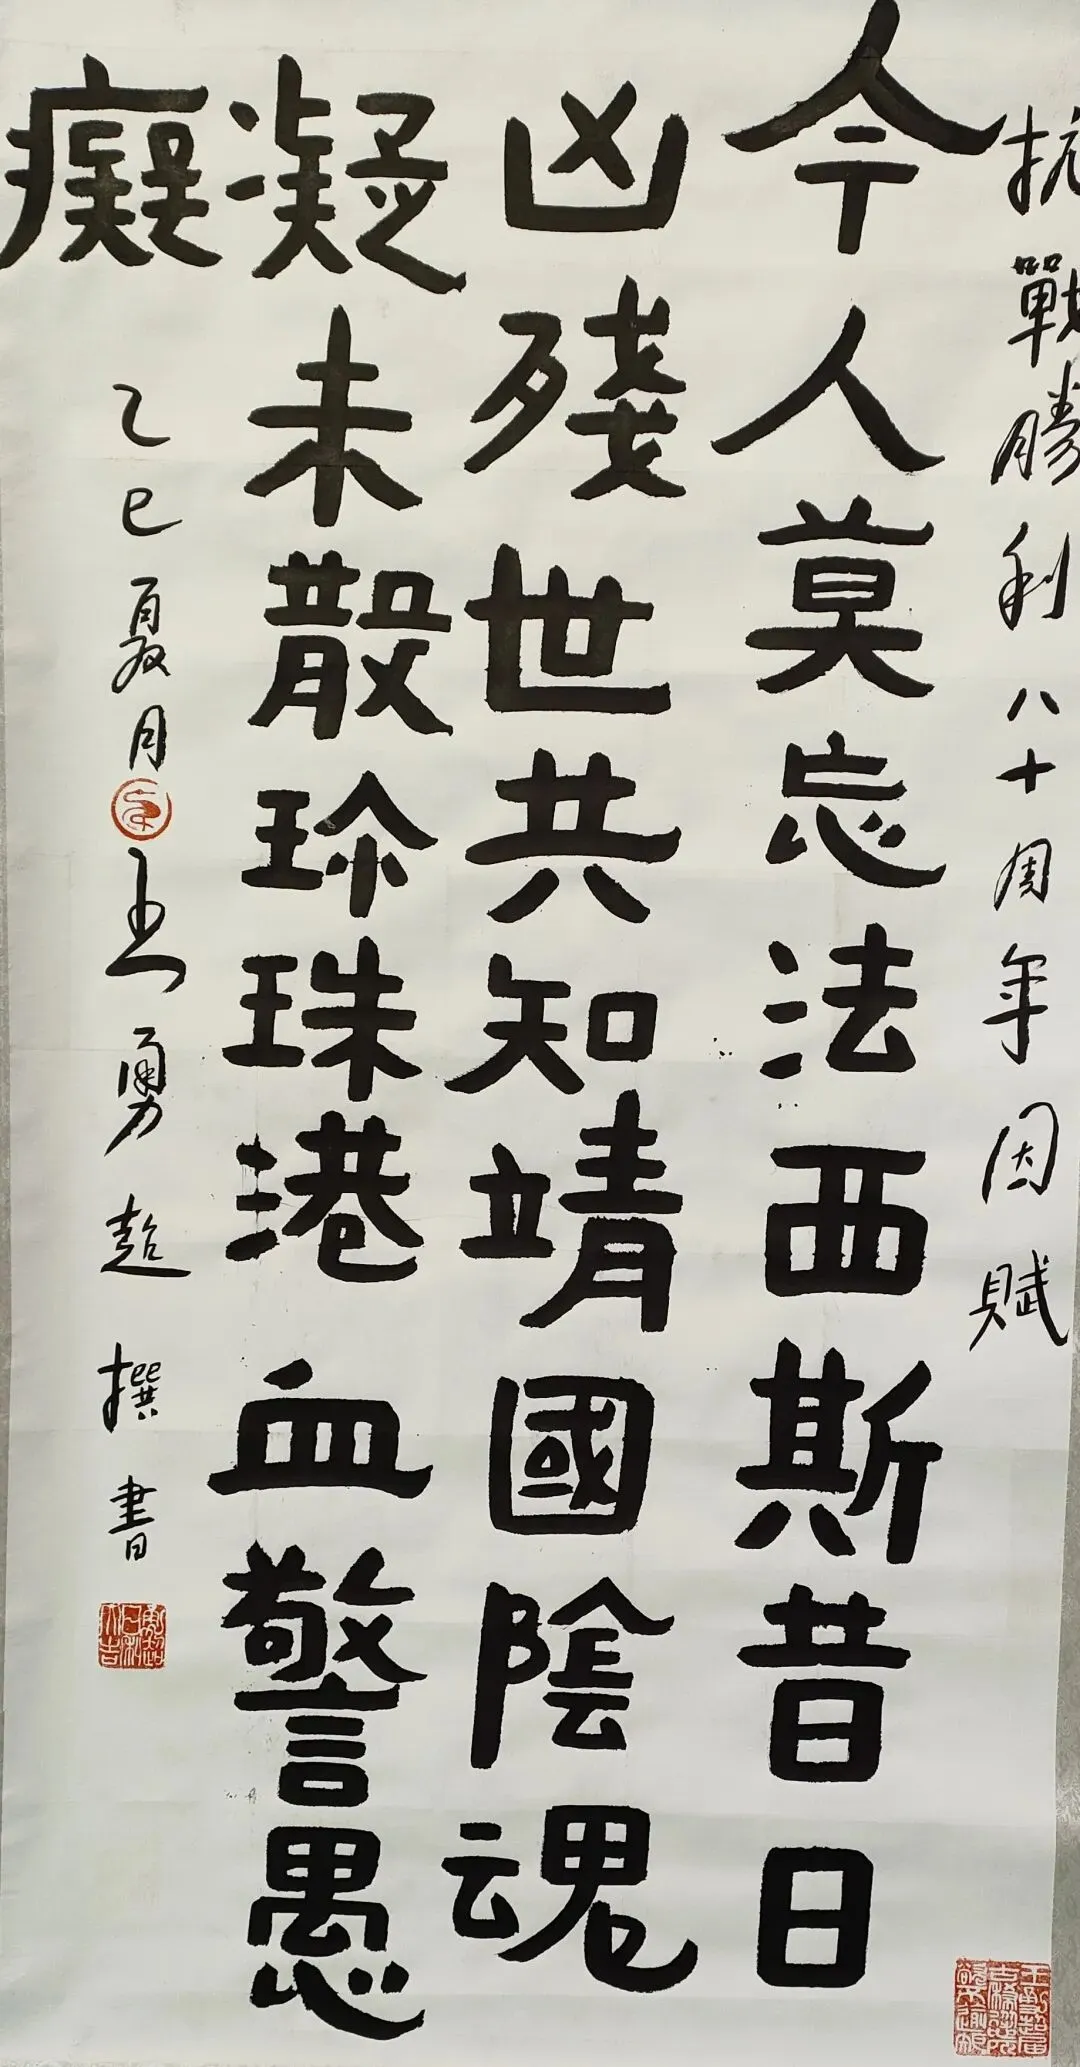 抗戰勝利八十周年因賦
今人莫忘法西斯昔日
凶殘世共知靖國陰魂
凝未散珍珠港血警愚
癡
乙巳夏月王勇超撰書